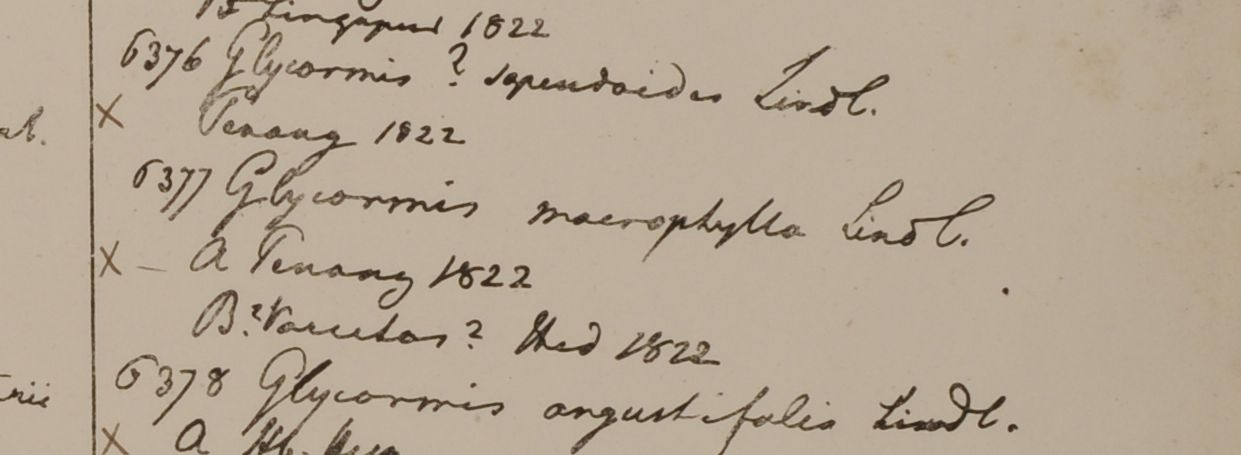 B Singapur 1822
6376 Glycosmis ? sapindoides Lindl.
X Penang 1822
6377 Glycosmis macrophylla Lindl.
X – A Penang 1822
B? Varietas? Ibid 1822
6378 Glycosmis angustifolia Lindl.
X A Hb.